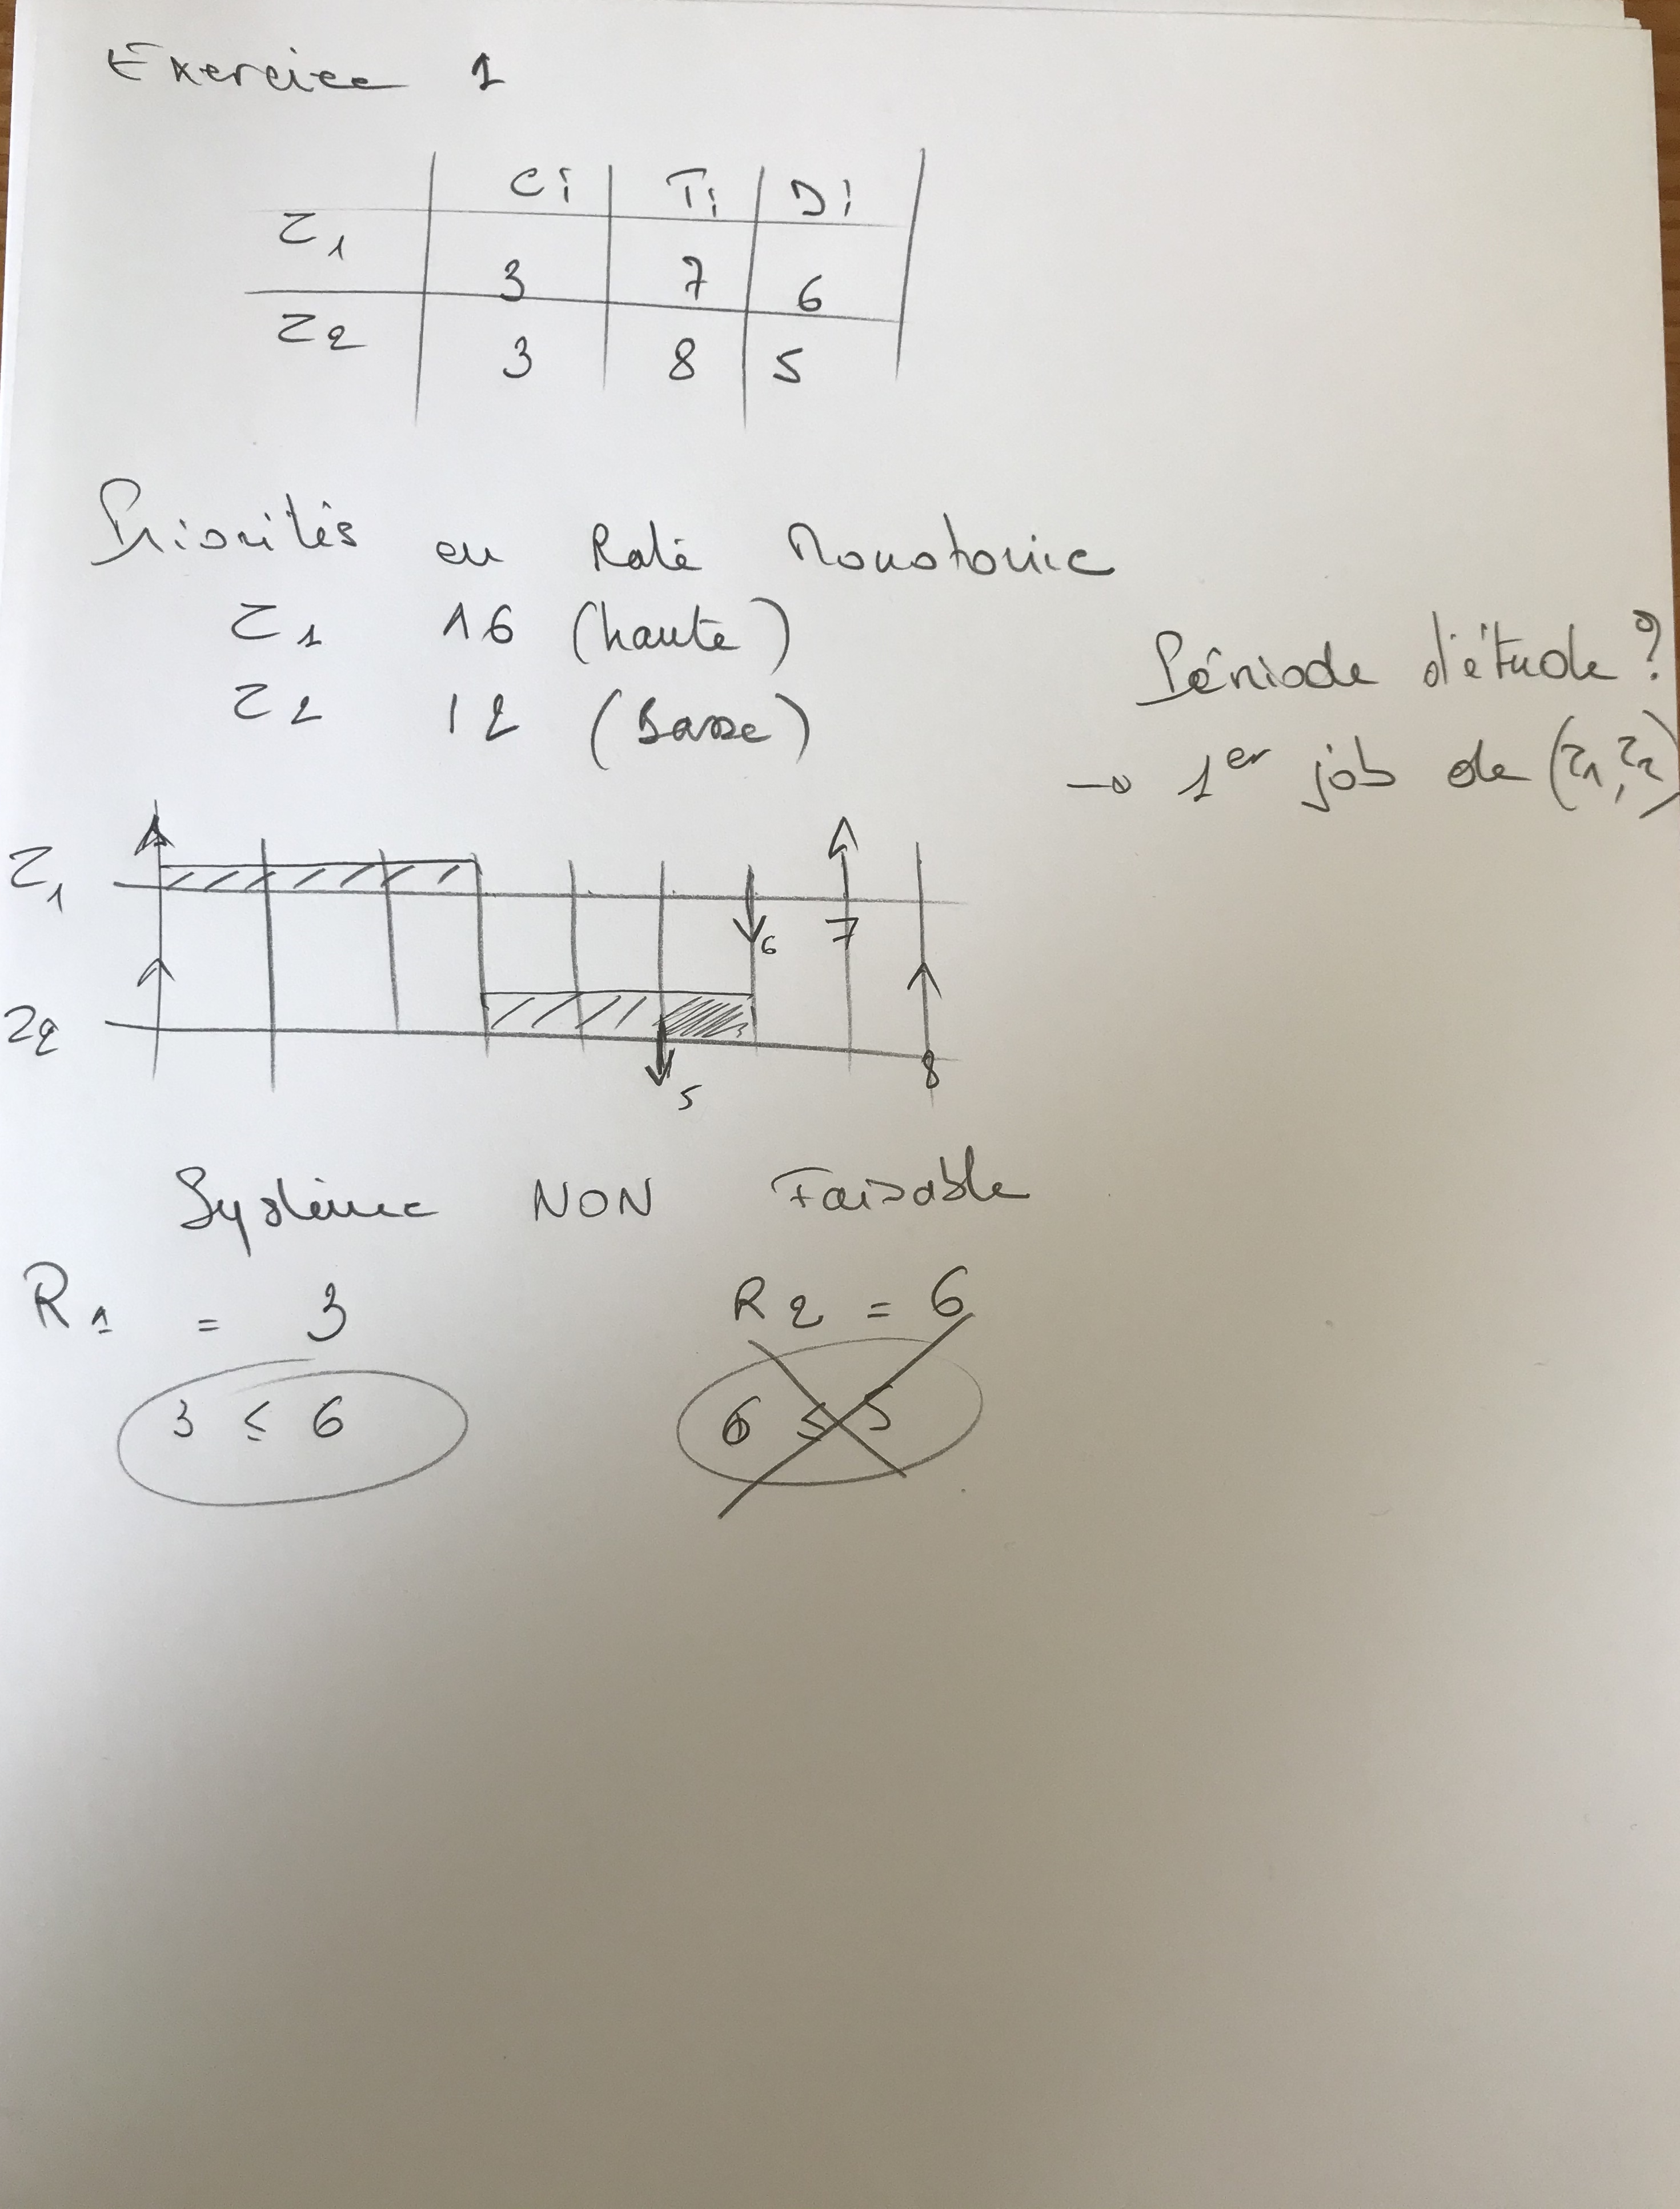 Exercice 1
Ci Ti Di
τ1 3 7 6
τ2 3 8 5
Priorités en Rate Monotonic
τ1 16 (haute)
τ2 12 (Basse)
Période d'étude ?
→ 1er job de (τ1, τ2)
τ1
6
7
τ2
5
8
Système NON Faisable
R1 = 3 R2 = 6
3 ≤ 6 6 ≤ 5